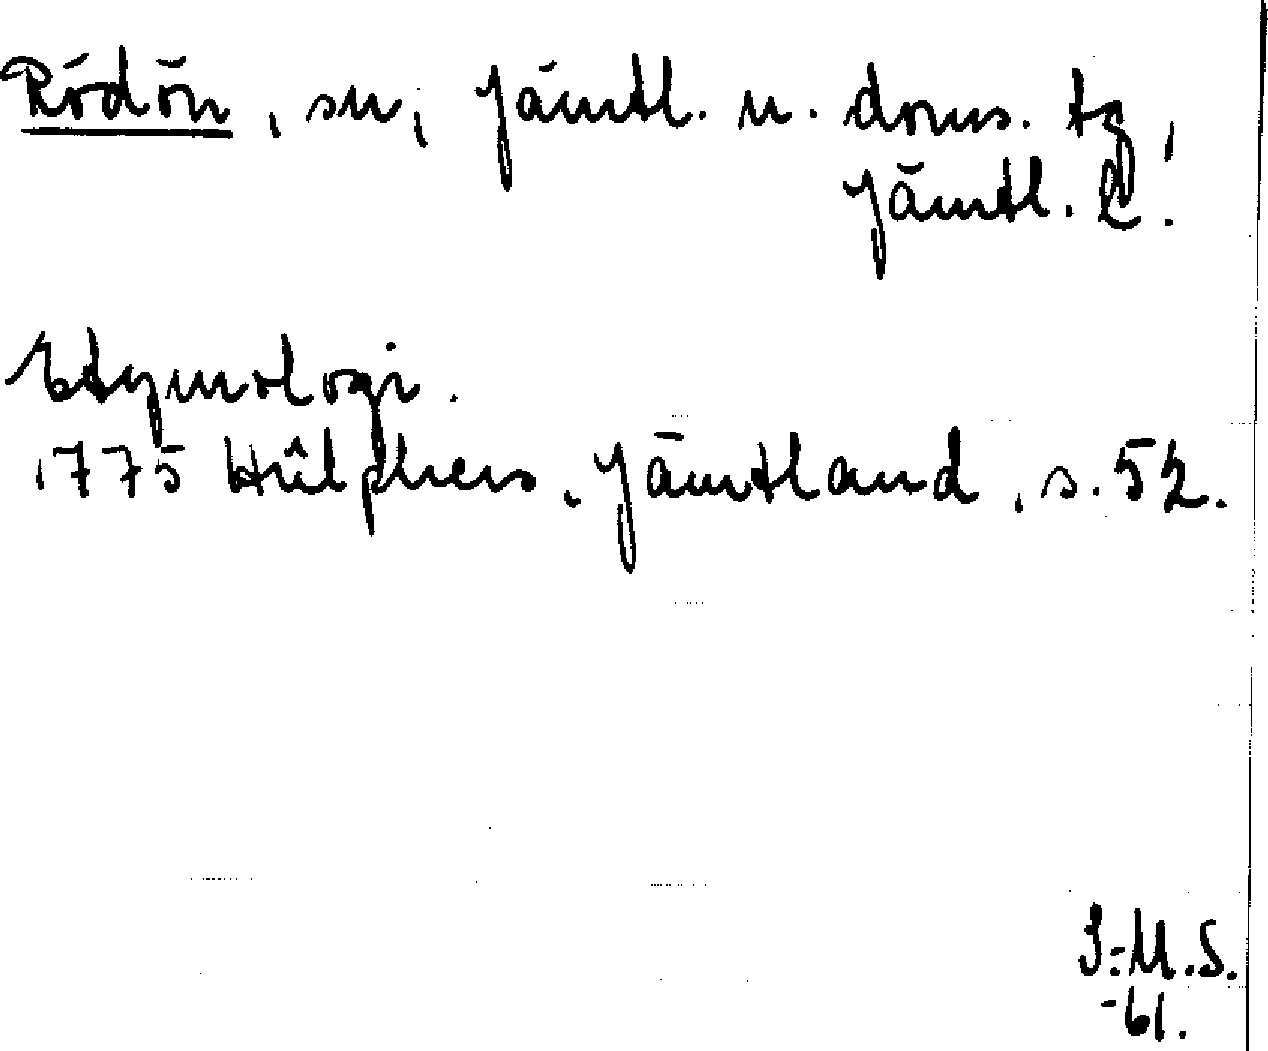 Rödön, sn, Jämtl. n. doms. tg,
Jämtl. l.
Etymologi.
1775 Hülphers, Jämtland, s. 52.
S:M.S.
-61.